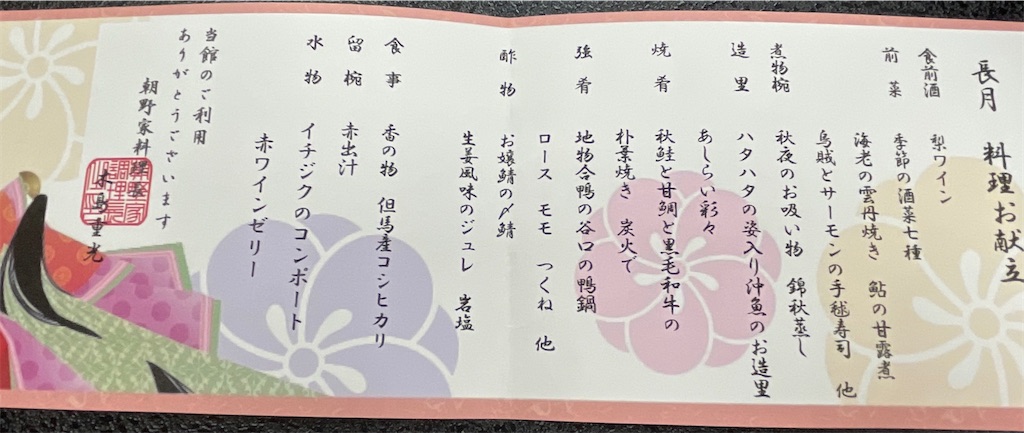 長月 料理お献立
食前酒 梨ワイン
前菜 季節の酒菜七種
海老の雲丹焼き 鮎の甘露煮
烏賊とサーモンの手毬寿司 他
煮物椀 秋夜のお吸い物 錦秋蒸し
造里 ハタハタの姿入り沖魚のお造里
あしらい彩々
焼肴 秋鮭と甘鯛と黒毛和牛の
朴葉焼き 炭火で
強肴 地物合鴨の谷口の鴨鍋
ロース モモ つくね 他
酢物 お嬢鯖の〆鯖
生姜風味のジュレ 岩塩
食事 香の物 但馬産コシヒカリ
留椀 赤出汁
水物 イチジクのコンポート
赤ワインゼリー
当館のご利用
ありがとうございます
朝野家料理長
重光